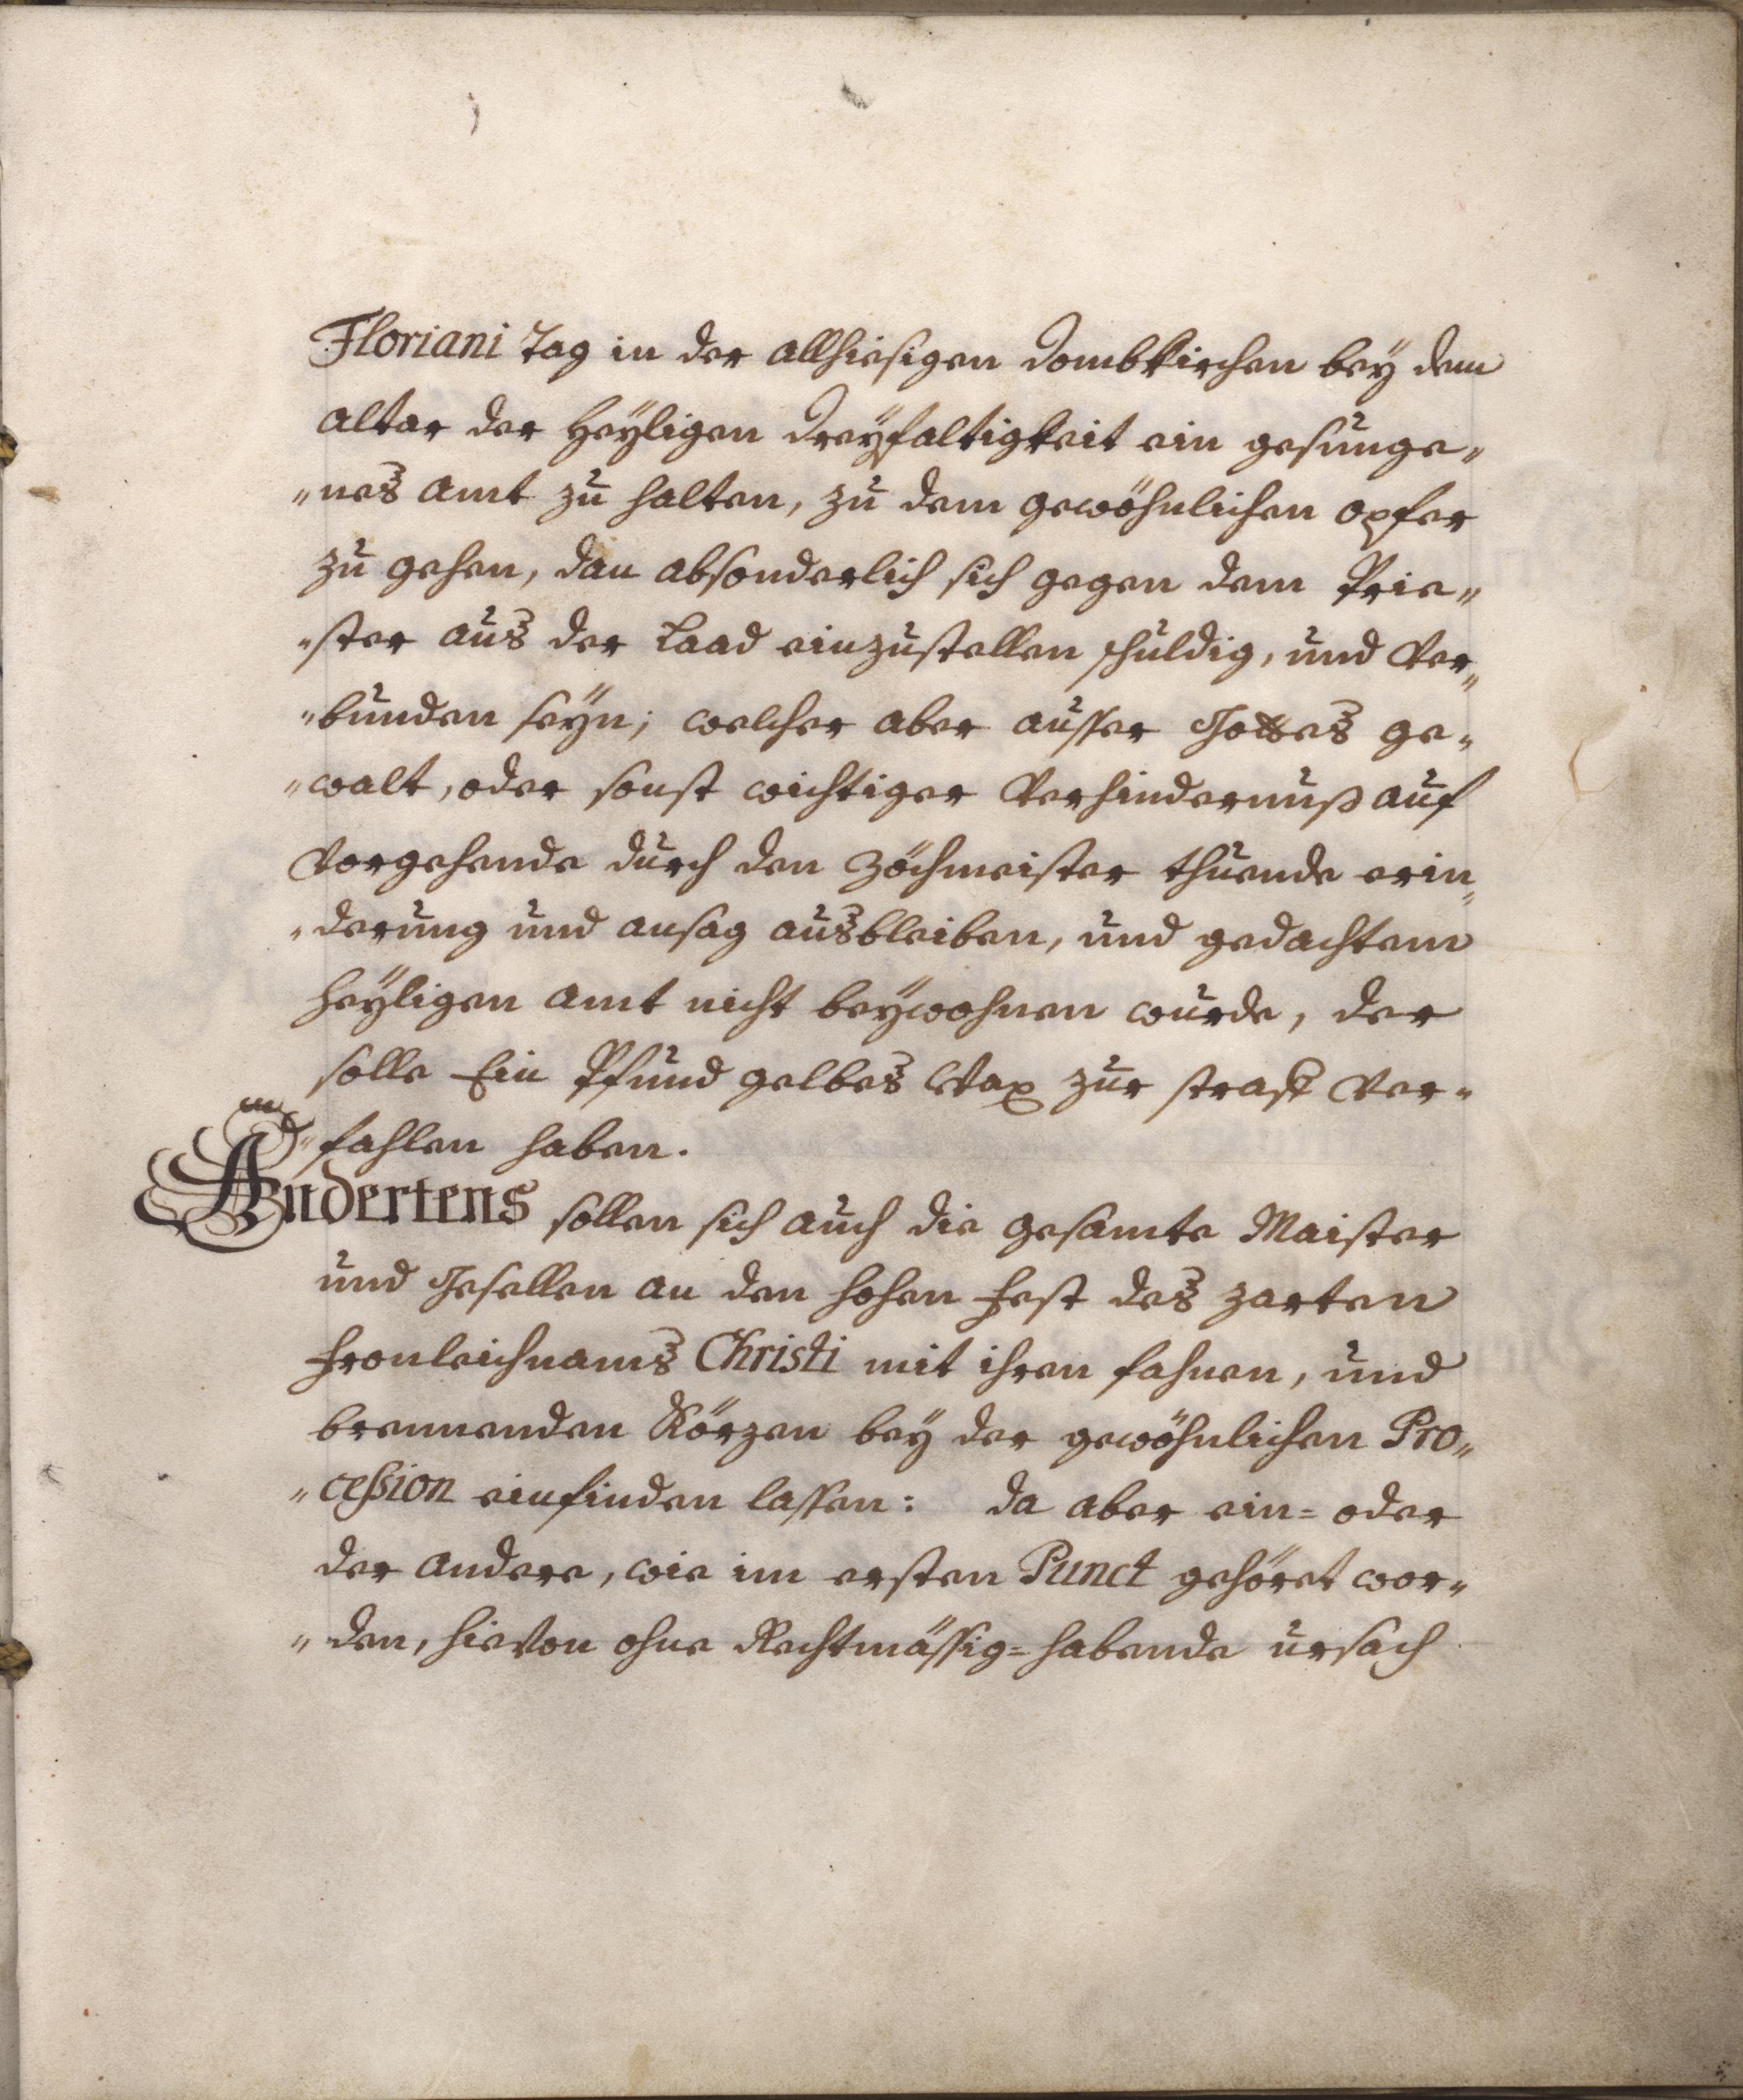 Floriani Tag in der allhiesigen Dombkirchen beÿ dem
altar der Heÿligen Dreÿfaltigkeit ein gesunge„
„nes amt zu halten, zu dem gewöhnlichen opfer
zu gehen, dan absonderlich sich gegen dem Prie„
„ster aus der Laad einzustellen schuldig, und Ver„
„bunden seÿn; welcher aber ausser Gottes ge„
„walt, oder sonst wichtiger Verhindernuß auf
Vorgehende durch den Zöchmeister thuende erin„
„derung und ansag ausbleiben, und gedachtem
heÿligen amt nicht beÿwohnen wurde, der
solle Ein Pfund gelbes Wax zur straff Ver„
„fahlen haben.
Andertens sollen sich auch die gesamte Maister
und Gesellen an den hohen Fest des zarten
Fronleichnams Christi mit ihren fahnen, und
brennenden Körzen beÿ der gewöhnlichen Pro„
„ceßion einfinden lassen: da aber ein= oder
der andere, wie im ersten Punct gehöret wor„
„den, hieVon ohne Rechtmässig=habende ursach